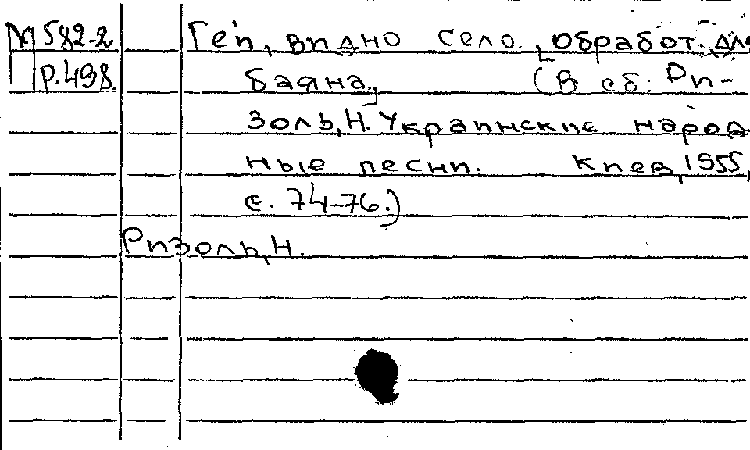 М 582-2 Гей, видно село., [обработ. для
р.498. баяна,] (В сб: Ри-
золь, Н. Украинские народ
ные песни. Киев, 1955,
с. 74-76.)
Ризоль, Н.